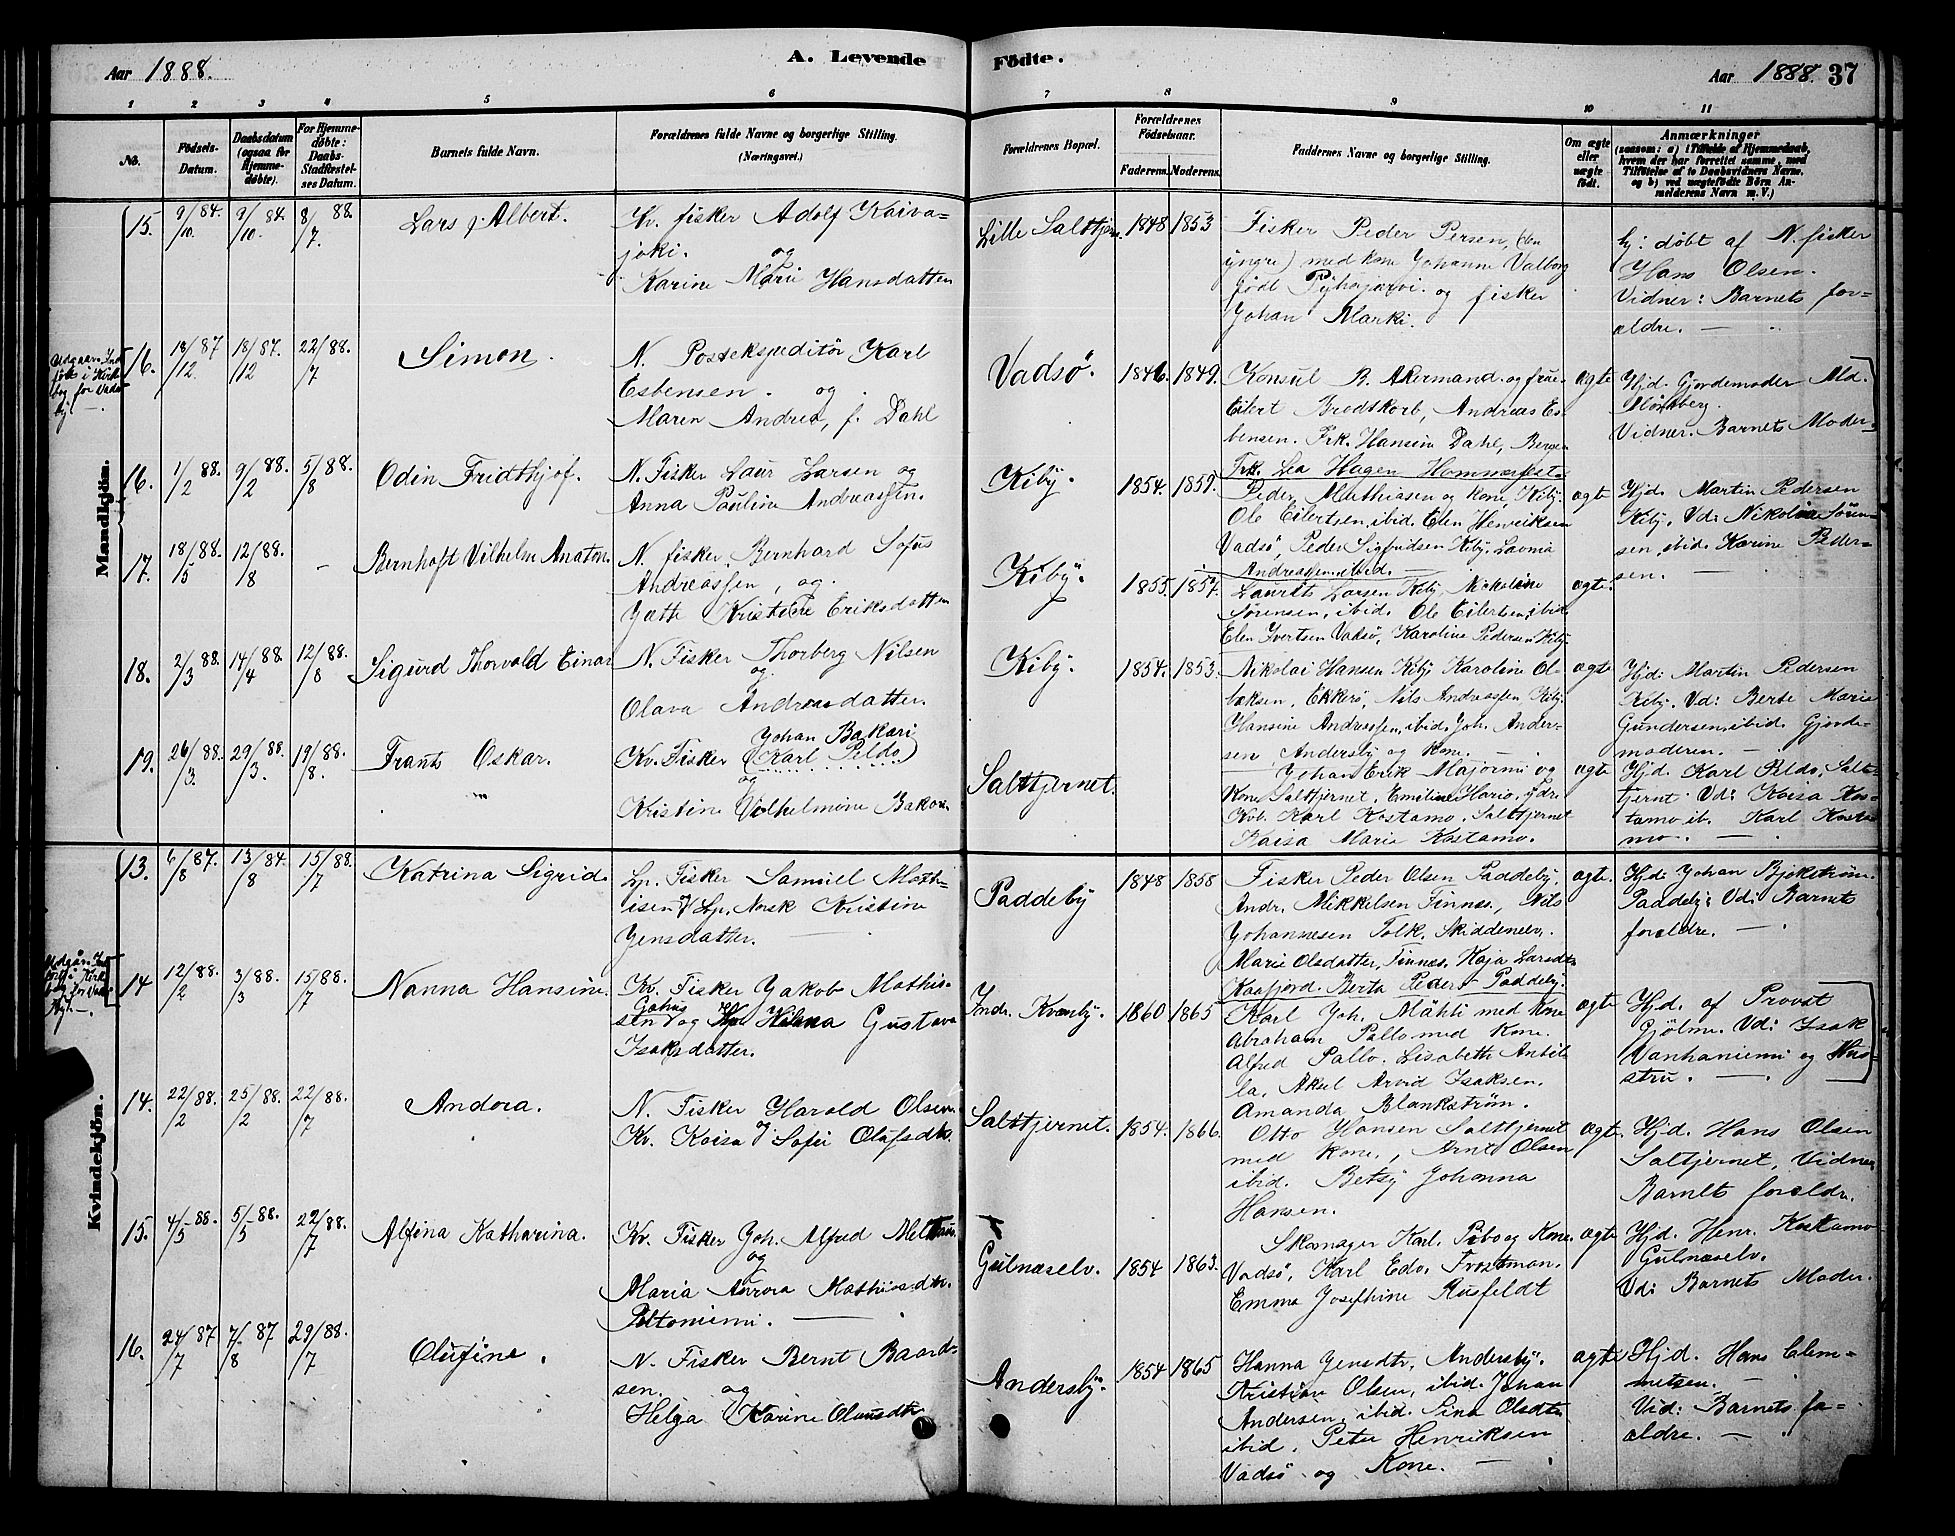 Aar 1888.
A. Levende Födte.
Aar 1888. 37
1 2 3 4 5 6 7 8 9 10 11
No.
Födsels-
Datum.
Daabsdatum
(ogsaa for
Hjemme-
døbte).
For Hjemme-
døbte:
Daabs-
Stadfæstel-
ses Datum.
Barnets fulde Navn.
Forældrenes fulde Navne og borgerlige Stilling.
(Næringsvei.)
Forældrenes Bopæl.
Forældrenes
Fødselsaar.
Faderens. Moderens.
Faddernes Navne og borgerlige Stilling.
Om ægte
eller
uægte
født.
Anmærkninger
(saasom: a) i Tilfælde af Hjemmedaab,
hvem der har forrettet samme, med
Tilføielse af to Daabsvidners Navne,
og b) ved uægtefødte Børn An-
melderens Navn m. V.)
Mandkjön.
15. 9/10 84. 9/10 84. 8/7 88.
Lars Albert.
Kv. fisker Adolf Kaiva-
joki. og
Karine Marie Hansdatter
Lille Saltjern. 1848 1853
Fisker Peder Persen, (den
yngre) med kone Johanne Valborg
født Pyhajarvi. og fisker
Johan Marki.
hj: døbt af N. fisker
Hans Olsen.
Vidner: Barnets for-
ældre. —
16. 18/12 87 18/12 87. 22/7 88.
Simon.
N. Postekspeditör Karl
Esbensen. og
Maren Andrea, f. Dahl
Vadsö. 1846. 1849.
Konsul B. Akermand og frue.
Eilert Brodtkorb, Andreas Es-
bensen. Frk. Hansine Dahl, Bergen
Frk. Lea Hagen Hammerfest.
ægte
Hjd. Gjordemoder Md.
Vidner. Barnets Moder.
16. 1/2 88. 9/2 88. 5/8 88.
Odin Fridthjof.
N. Fisker Laur Larsen og
Anna Pauline Andreassen.
Kiby. 1854. 1859.
Peder Mathiasen og kone, Kiby.
Ole Eilertsen, ibid. Elen Henriksen
Vadsö, Peder Sigfridsen Kiby. Lavinia
Andreassen, ibid. —
ægte
Hjd. Martin Pedersen
Kiby. Vd: Nikoline Sören-
sen, ibid. Karine Peder-
sen. —
17. 18/5 88. 12/8 88. —
Bernhoft Vilhelm Anaton.
N. fisker Bernhard Sofus
Andreassen, og
Kristine Eriksdatter
Kiby. 1855.
Laurits Larsen Kiby, Nikoline
Sörensen, ibid. Ole Eilertsen, ibid.
Elen Ivertsen Vadsö, Karoline Pedersen Kiby.
ægte.
18. 2/3 88. 14/4 88. 12/8 88.
Sigurd Thorvald Einar
N. Fisker Thorberg Nilsen
og
Olava Andreasdatter.
Kiby. 1854. 1853.
Nikolai Hansen Kiby, Karoline Ol-
Ekkerö, Nils Andreassen Kiby.
Hansine Andreassen, ibid. Joh. Ander-
sen, Andersby og kone. —
ægte
Hjd: Martin Pedersen
Kiby. Vd: Berte Marie
Gundersen, ibid. Gjorde-
moderen. —
19. 26/3 88. 29/3 88. 19/8 88.
Frants Oskar.
Johan Bakari
Kv. Fisker (Karl Peldo)
og
Kristine Vilhelmine
Saltjernet.
Johan Erik Majormi og
Kone, Saltjernet, Emiline Hario, ydre
Kvb. Karl Kostamo, Saltjernet
Kaisa Maria Kostamo.
ægte
Hjd. Karl Peldo, Salt-
jernt. Vd: Kaisa Kos-
tamo ib. Karl Kosta-
mo. —
Kvindekjön.
13. 6/8 87. 13/8 84. 15/7 88.
Katrina Sigrid.
Lp. Fisker Samuel Math-
isen og Lp. Norsk Kristine
Jensdatter. —
Paddeby 1848 1858
Fisker Peder Olsen Paddeby,
Andr. Mikkelsen Finnes, Nils
Johannesen Tolk, Skiddenelv.
Marie Olsdatter, Finnes, Kaja Larsdtr
Kaafjord. Berta Pedersd. Paddeby.
ægte.
Hjd: Johan Bjökström
Paddeby: Vd: Barnets
forældre. —
14 12/2 88. 3/3 88. 15/7 88.
Nanna Hansine.
Kv. Fisker Jakob Mathis-
sen og Hilma Gustava
Isaksdatter.
Indr. Kvænby. 1860 1865
Karl Joh. Mähti med kone
Abraham Pallo med kone.
Alfred Pallo. Lisabeth Anttil-
la, Aksel Arvid Isaksen.
Amanda Blankström.
ægte
Hjd. af Provst
Gjölme. Vd: Isak
Vanhaniemi og Hus-
stru. —
14. 22/2 88. 25/2 88. 22/7 88.
Andora.
N. Fisker Harald Olsen.
Kv. Kaisa Sofie Olufsdtr.
Saltjernet. 1854. 1866.
Otto Hansen Saltjernet
med kone, Arnt Olsen
ibid. Betsy Johanna
Hansen.
ægte.
Hjd. Hans Olsen
Saltjernet, Vidner
Barnets forældr.
15. 4/5 88. 5/5 88. 22/7 88.
Alfina Katharina.
Kv. Fisker Joh. Alfred
og
Maria Aurora Mathiasdtr.
Peltoniemi. —
Gulnæselv. 1854 1863.
Skomager Karl og Kone
Vadsö, Karl Edv. Frostman.
Emma Josefhine Rusfeldt
ægte
Hjd. Henr. Kostamo
Gulnæselv.
Vd: Barnets Moder.
16. 24/7 87 7/8 87 29/7 88.
Olufine.
N. Fisker Bernt Baard-
sen. og
Helga Karine Olausdtr
Andersby. 1854 1865
Hanna Jensdtr, Andersby.
Kristian Olsen, ibid. Johan
Andersen, ibid. Sina Olsdtr
ibid. Peter Henriksen
Vadsö og Kone. —
ægte
Hjd. Hans Clem-
metsen. —
Vid: Barnets fo-
ældre. —